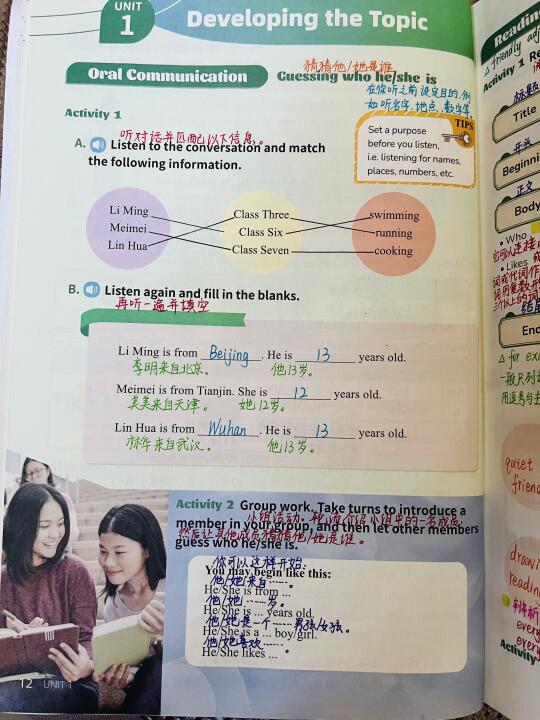 UNIT
1
Developing the Topic
猜猜他/她是谁
Oral Communication
Guessing who he/she is
在你听之前设定目的,例
如听名字、地点、数字等。
Activity 1
TIPS
听对话并匹配以下信息。
A. Listen to the conversation and match
the following information.
Set a purpose
before you listen,
i.e. listening for names,
places, numbers, etc.
Li Ming
Meimei
Lin Hua
Class Three
Class Six
Class Seven
swimming
running
cooking
B. Listen again and fill in the blanks.
再听一遍并填空
Li Ming is from Beijing. He is 13 years old.
李明来自北京。 他13岁。
Meimei is from Tianjin. She is 12 years old.
美美来自天津。 她12岁。
Lin Hua is from Wuhan. He is 13 years old.
林华来自武汉。 他13岁。
Activity 2 Group work. Take turns to introduce a
小组活动。轮流介绍小组中的一名成员,
member in your group, and then let other members
然后让其他成员猜猜他/她是谁。
guess who he/she is.
你可以这样开始:
You may begin like this:
他/她来自……。
He/She is from ...
他/她……岁。
He/She is ... years old.
他/她是一个……男孩/女孩。
He/She is a ... boy/girl.
他/她喜欢……。
He/She likes ...
12 UNIT 1
Reading
friendly adj
Activity 1 Re
标题
Title
开头
Beginni
正文
Body
• Who
• Likes
End
△ for exa
quiet
friend
drawi
readin
every
every
Activity